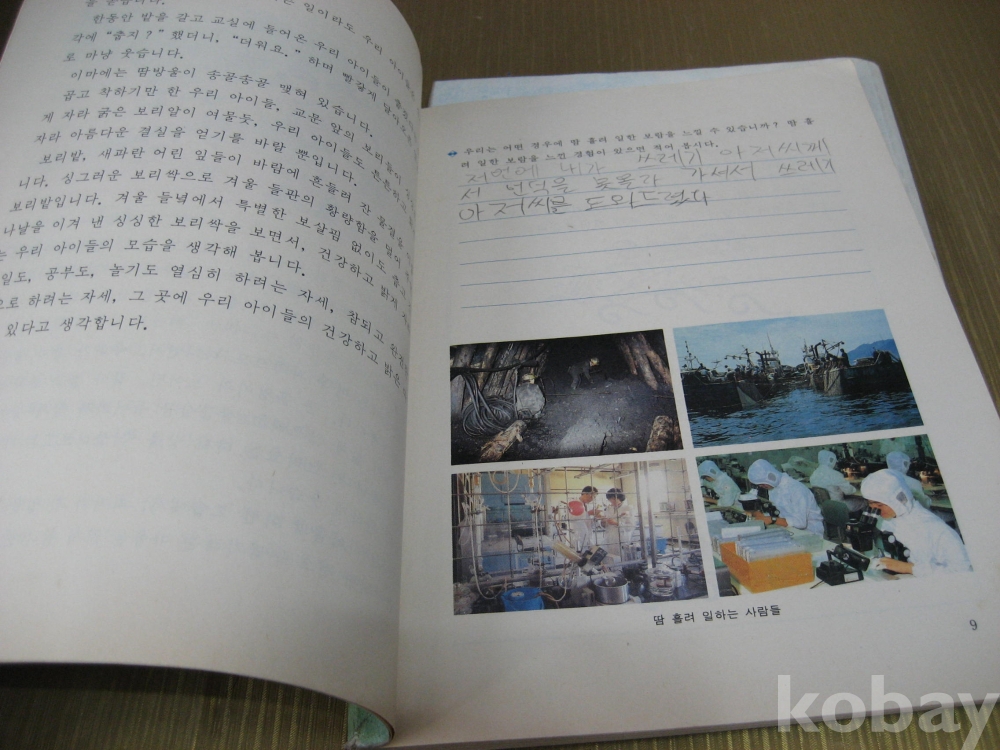 을 는 일이라도 우리
한동안 밭을 갈고 교실에 들어온 우리 아이들이
각에 "춥지?" 했더니. "더워요." 하며 빨갛게
로 마냥 웃습니다.
이마에는 땀방울이 송골송골 맺혀 있습니다.
곱고 착하기만 한 우리 아이들. 교문 앞의 보리들이
게 자라 굵은 보리알이 여물듯, 우리 아이들도 튼튼하
자라 아름다운 결실을 얻기를 바랄 뿐입니다.
보리밭, 새파란 어린 잎들이 바람에 흔들려 잔 물결을
니다. 싱그러운 보리싹으로 겨울 들판의 황량함을 덮어
보리밭입니다. 겨울 들녘에서 특별한 보살핌 없이도 곱고
나날을 이겨 낸 싱싱한 보리싹을 보면서, 건강하고 밝게
는 우리 아이들의 모습을 생각해 봅니다.
일도, 공부도, 놀기도 열심히 하려는 자세, 참되고
으로 하려는 자세, 그 곳에 우리 아이들의 건강하고 밝은
있다고 생각합니다.
우리는 어떤 경우에 땀 흘려 일한 보람을 느낄 수 있습니까? 땀 흘
려 일한 보람을 느낀 경험이 있으면 적어 봅시다.
저번에 내가 쓰레기 아저씨께
서 못올라 가셔서 쓰레기
아저씨를 도와드렸다
땀 흘려 일하는 사람들
9
kobay